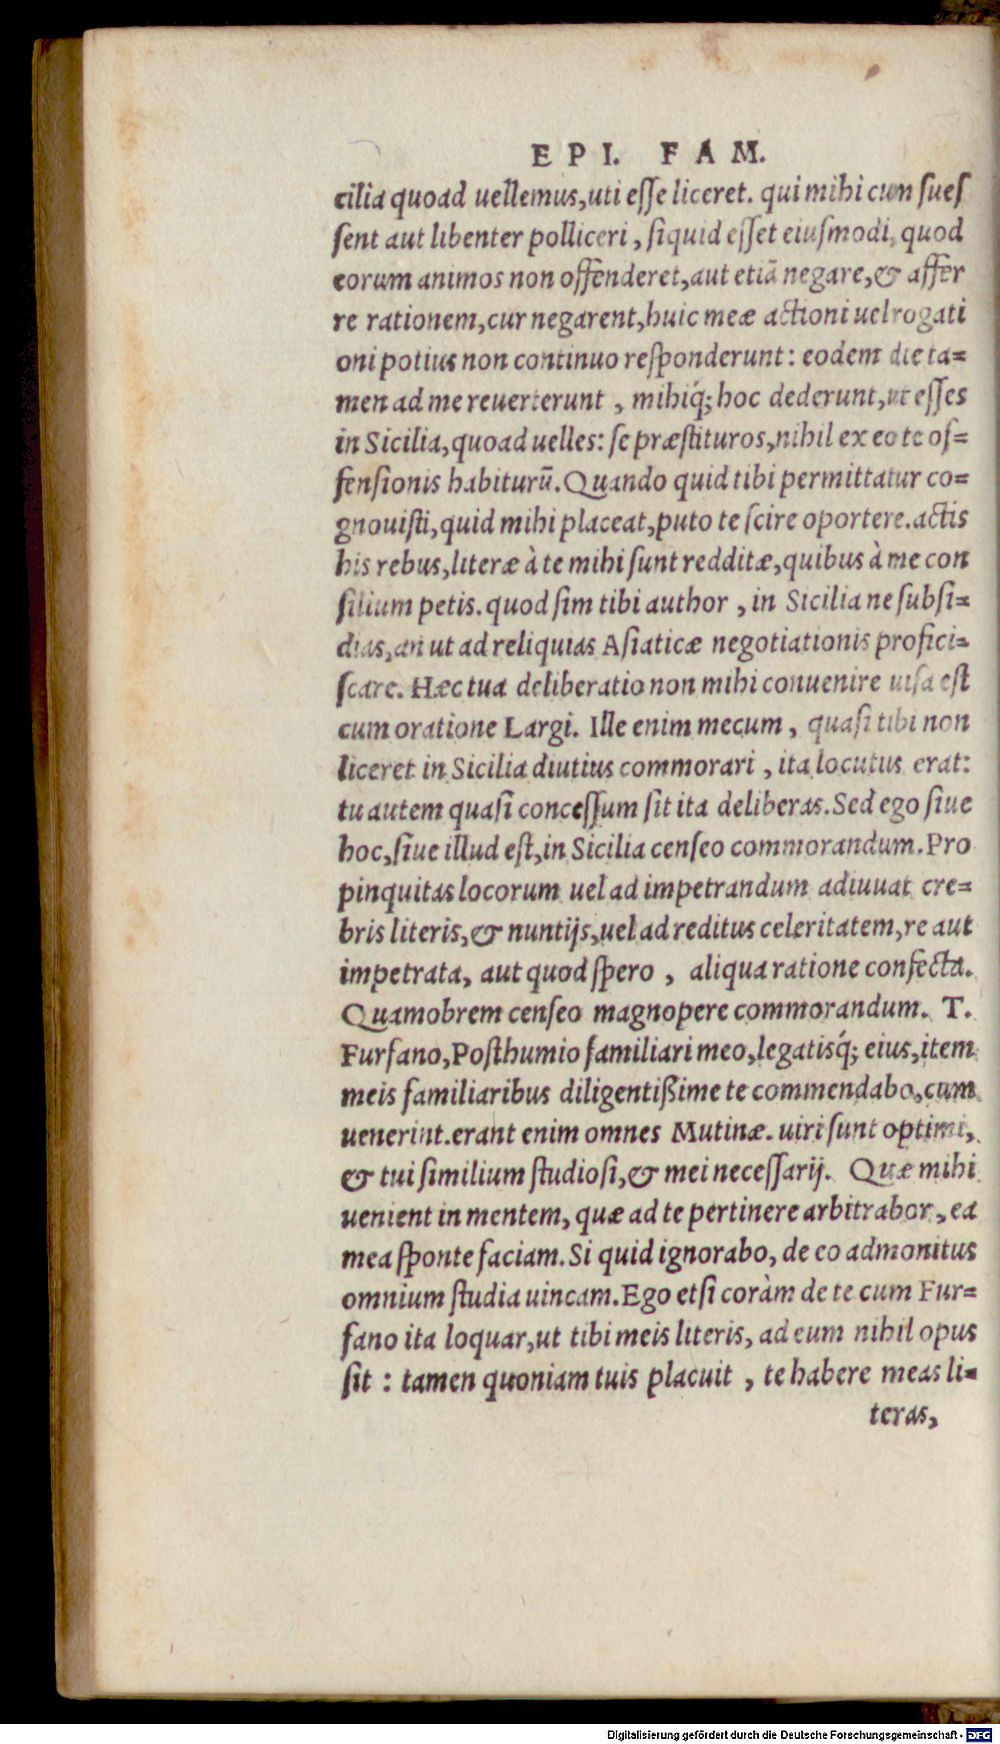 EPI. FAM.
cilia quoad uellemus, uti eſſe liceret. qui mihi cum ſueſ
ſent aut libenter polliceri, ſiquid eſſet eiuſmodi, quod
eorum animos non offenderet, aut etiā negare, & affer
re rationem, cur negarent, huic meæ actioni uel rogati
oni potius non continuo reſponderunt: eodem die ta=
men ad me reuerterunt, mihiq́; hoc dederunt, ut eſſes
in Sicilia, quoad uelles: ſe præſtituros, nihil ex eo te of=
fenſionis habiturū. Quando quid tibi permittatur co=
gnouiſti, quid mihi placeat, puto te ſcire oportere. actis
his rebus, literæ à te mihi ſunt redditæ, quibus à me con
ſilium petis. quod ſim tibi author, in Sicilia ne ſubſi=
dias, an ut ad reliquias Aſiaticæ negotiationis profici=
ſcare. Hæc tua deliberatio non mihi conuenire uiſa eſt
cum oratione Largi. Ille enim mecum, quaſi tibi non
liceret in Sicilia diutius commorari, ita locutus erat:
tu autem quaſi conceſſum ſit ita deliberas. Sed ego ſiue
hoc, ſiue illud eſt, in Sicilia cenſeo commorandum. Pro
pinquitas locorum uel ad impetrandum adiuuat cre=
bris literis, & nuntijs, uel ad reditus celeritatem, re aut
impetrata, aut quod ſpero, aliqua ratione confecta.
Quamobrem cenſeo magnopere commorandum. T.
Furfano, Poſthumio familiari meo, legatisq́; eius, item
meis familiaribus diligentißime te commendabo, cum
uenerint. erant enim omnes Mutinæ. uiri ſunt optimi,
& tui ſimilium ſtudioſi, & mei neceſſarij. Quæ mihi
uenient in mentem, quæ ad te pertinere arbitrabor, ea
mea ſponte faciam. Si quid ignorabo, de eo admonitus
omnium ſtudia uincam. Ego etſi coràm de te cum Fur=
fano ita loquar, ut tibi meis literis, ad eum nihil opus
ſit : tamen quoniam tuis placuit, te habere meas li=
teras,
Digitalisierung gefördert durch die Deutsche Forschungsgemeinschaft - DFG